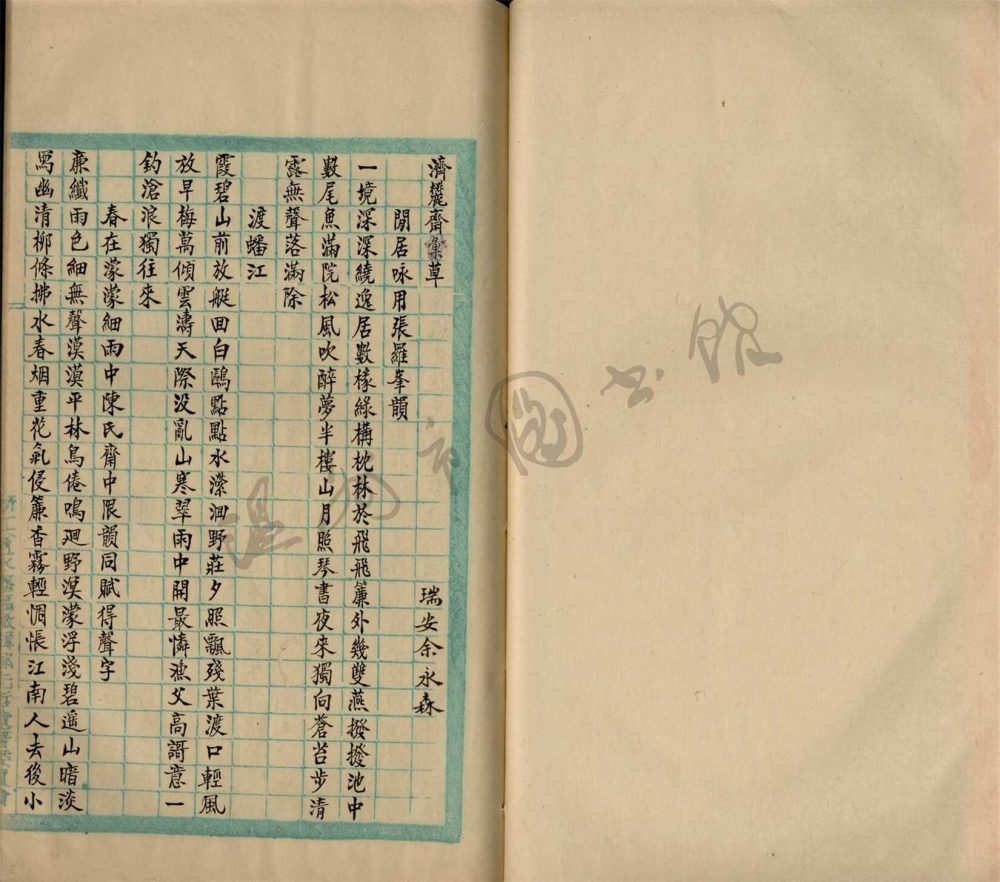 濟麓齋彙草
瑞安余永森
閒居咏用張羅峯韻
一境深深繞逸居數椽綠構枕林於飛飛簾外幾雙燕撥撥池中
數尾魚滿院松風吹醉夢半樓山月照琴書夜來獨向蒼苔步清
露無聲落滿除
渡蟠江
霞碧山前放艇回白鷗點點水濚洄野莊夕照飄殘葉渡口輕風
放早梅萬傾雲濤天際没亂山寒翠雨中開最憐漁父高謌意一
釣滄浪獨往來
春在濛濛細雨中陳氏齋中限韻同賦得聲字
廉纖雨色細無聲漠漠平林鳥倦鳴迴野溟濛浮淺碧遥山暗淡
寫幽清柳條拂水春烟重花氣侵簾香霧輕惆悵江南人去後小
溫州市圖書館